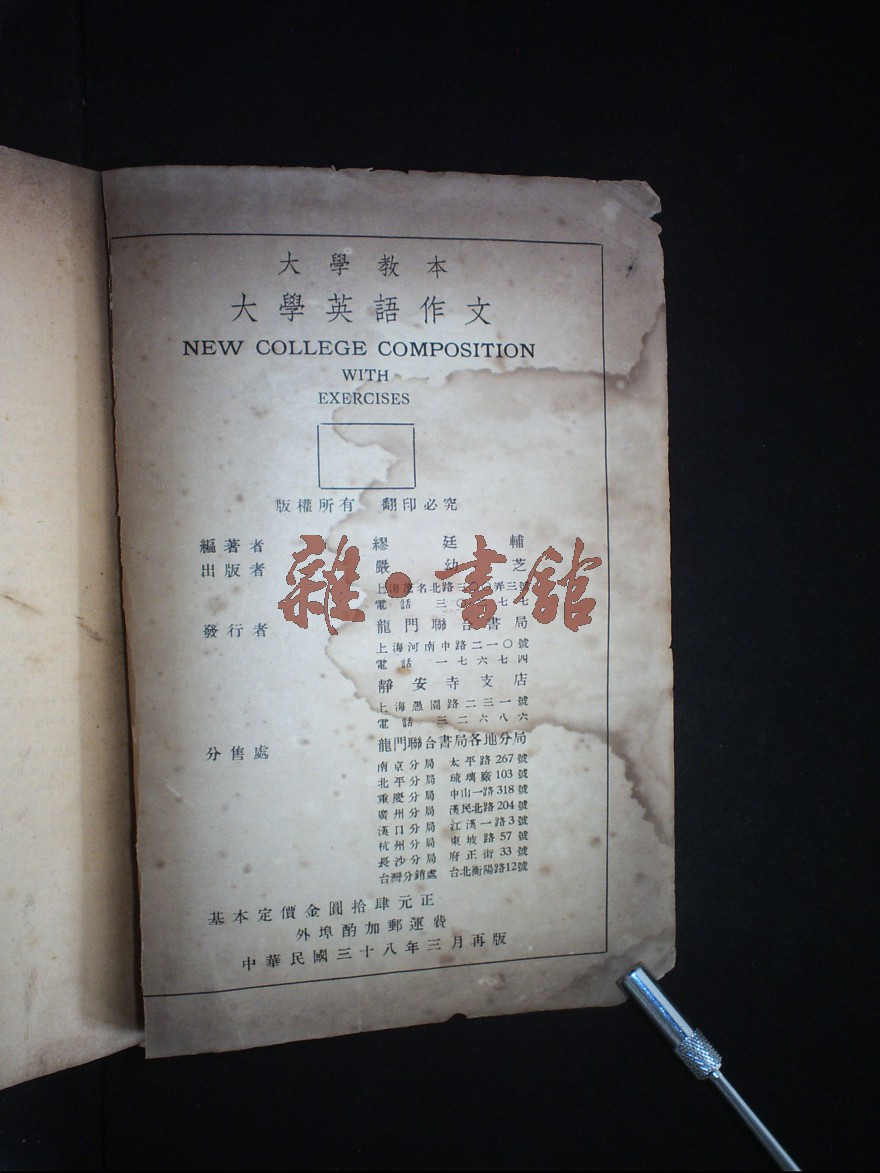 大學教本
大學英語作文
NEW COLLEGE COMPOSITION
WITH
EXERCISES
版權所有 翻印必究
編著者 繆廷輔
出版者 嚴幼芝
上海茂名北路三 弄三號
電話 三〇 七七
發行者 龍門聯合書局
上海河南中路二一〇號
電話 一七六七四
靜安寺支店
上海愚園路二三一號
電話 三二六八六
分售處 龍門聯合書局各地分局
南京分局 太平路267號
北平分局 琉璃廠103號
重慶分局 中山一路318號
廣州分局 漢民北路204號
漢口分局 江漢一路3號
杭州分局 東坡路57號
長沙分局 府正街33號
台灣分銷處 台北衡陽路12號
基本定價金圓拾肆元正
外埠酌加郵運費
中華民國三十八年三月再版
雜·書館